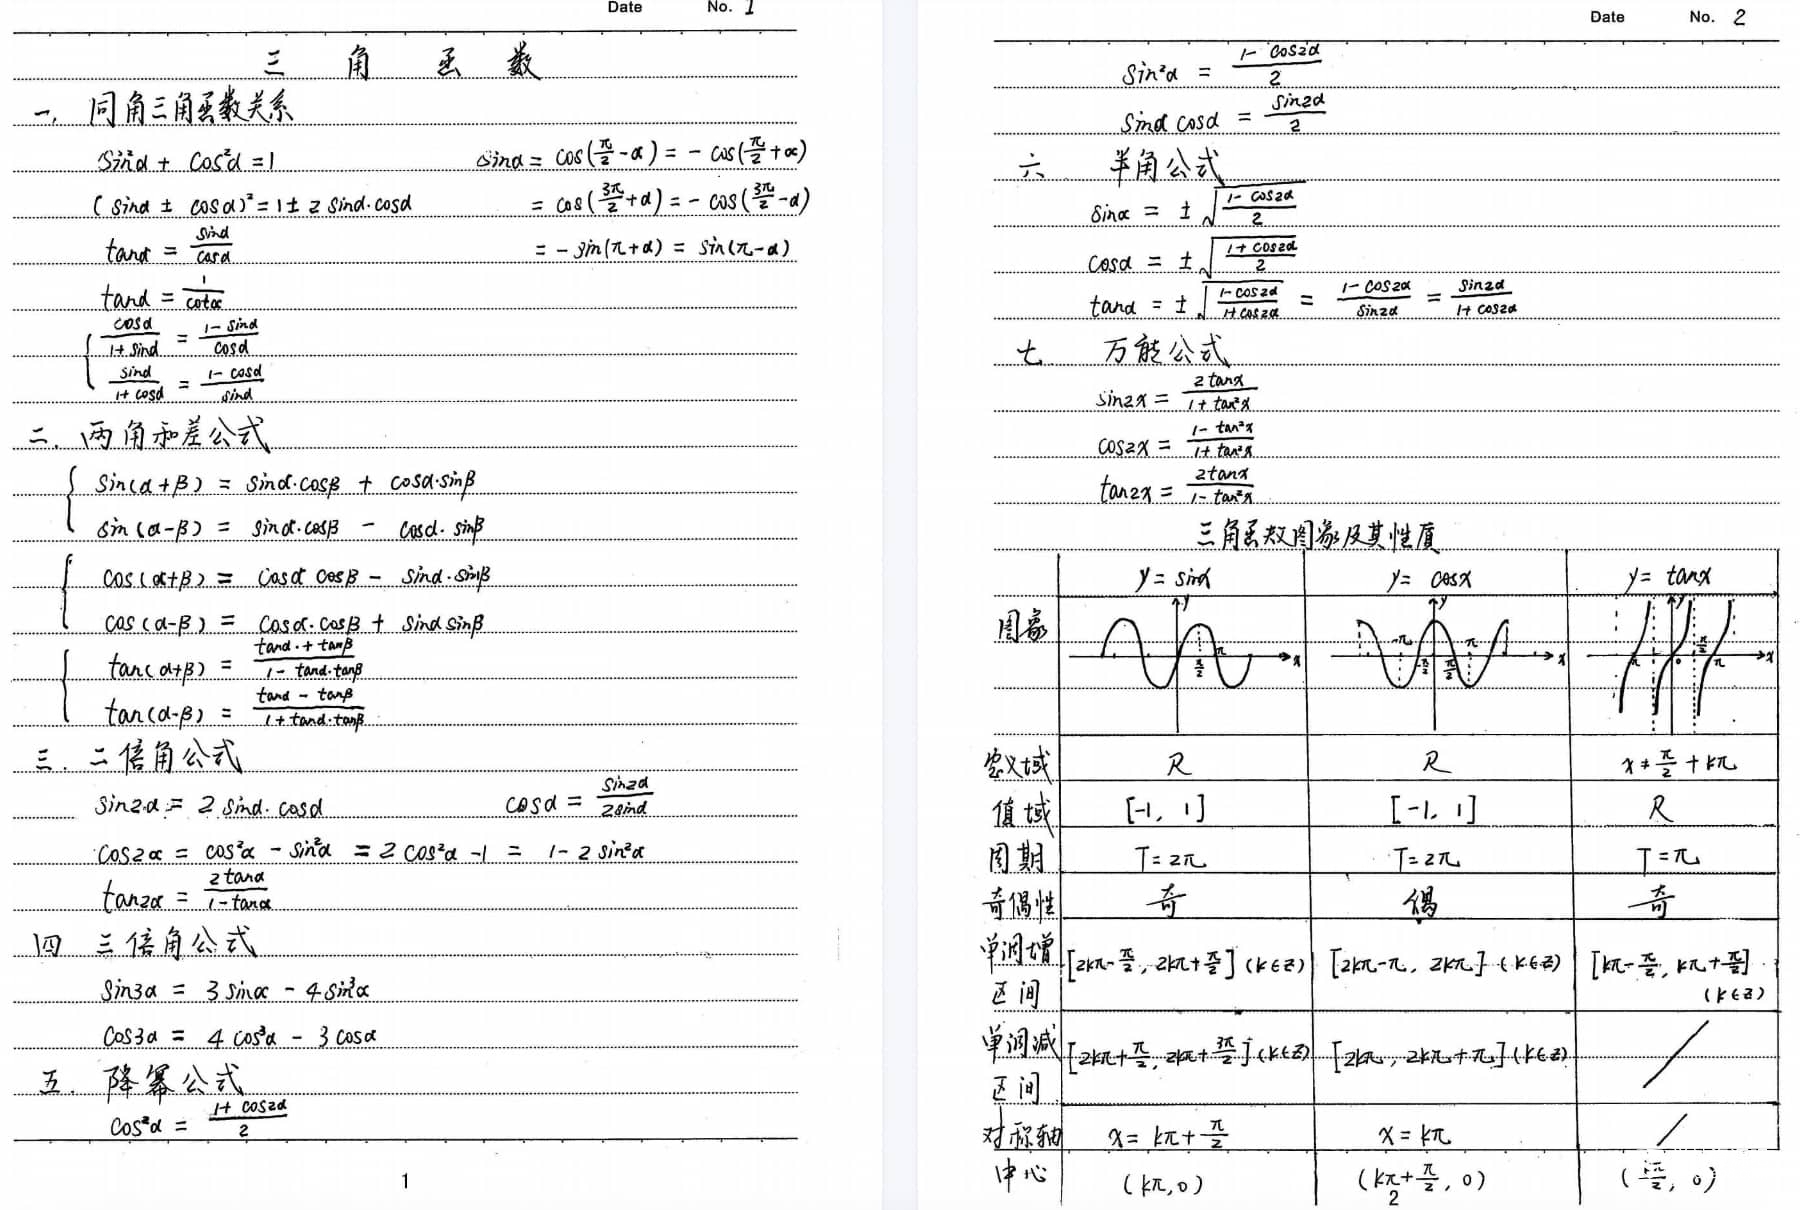 Date No. 1
三角函数
一. 同角三角函数关系
sin²α + cos²α = 1 sinα = cos(π/2 - α) = - cos(π/2 + α)
(sinα ± cosα)² = 1 ± 2 sinα·cosα = cos(3π/2 + α) = - cos(3π/2 - α)
tanα = sinα/cosα = - sin(π+α) = sin(π-α)
tanα = 1/cotα
cosα/(1+sinα) = (1-sinα)/cosα
sinα/(1+cosα) = (1-cosα)/sinα
二. 两角和差公式
sin(α+β) = sinα·cosβ + cosα·sinβ
sin(α-β) = sinα·cosβ - cosα·sinβ
cos(α+β) = cosα cosβ - sinα·sinβ
cos(α-β) = cosα·cosβ + sinα sinβ
tan(α+β) = (tanα·+tanβ)/(1-tanα·tanβ)
tan(α-β) = (tanα-tanβ)/(1+tanα·tanβ)
三. 二倍角公式
sin2α = 2 sinα·cosα cosα = sin2α/2sinα
cos2α = cos²α - sin²α = 2cos²α - 1 = 1 - 2sin²α
tan2α = 2tanα/(1-tanα)
四 三倍角公式
sin3α = 3 sinα - 4 sin³α
cos3α = 4 cos³α - 3 cosα
五. 降幂公式
cos²α = (1+cos2α)/2
1
Date No. 2
sin²α = (1-cos2α)/2
sinα cosα = sin2α/2
六 半角公式
sinα = ±√((1-cos2α)/2)
cosα = ±√((1+cos2α)/2)
tanα = ±√((1-cos2α)/(1+cos2α)) = (1-cos2α)/sin2α = sin2α/(1+cos2α)
七 万能公式
sin2x = 2tanx/(1+tan²x)
cos2x = (1-tan²x)/(1+tan²x)
tan2x = 2tanx/(1-tan²x)
三角函数图象及其性质
y = sinx y = cosx y = tanx
图象 y x π/2 π y x -π -π/2 π/2 π y x π 0 π/2 π
定义域 R R x ≠ π/2 + kπ
值域 [-1, 1] [-1, 1] R
周期 T = 2π T = 2π T = π
奇偶性 奇 偶 奇
单调增区间 [2kπ-π/2, 2kπ+π/2] (k∈Z) [2kπ-π, 2kπ] (k∈Z) [kπ-π/2, kπ+π/2] (k∈Z)
单调减区间 [2kπ+π/2, 2kπ+3π/2] (k∈Z) [2kπ, 2kπ+π] (k∈Z) /
对称轴 x = kπ + π/2 x = kπ /
中心 (kπ, 0) (kπ+π/2, 0) (kπ/2, 0)
2